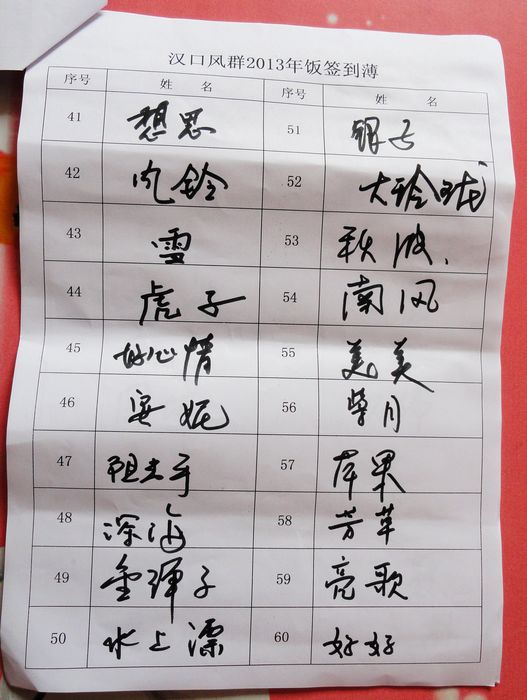 汉口风群2013年饭签到薄
序号 姓 名 序号 姓 名
41 想思 51 银子
42 风铃 52 大玲珑
43 雪 53 秋波
44 虎子 54 南风
45 好心情 55 美美
46 安妮 56
47 阻击手 57 苹果
48 深海 58 芳草
49 金弹子 59 亮歌
50 水上漂 60 好好